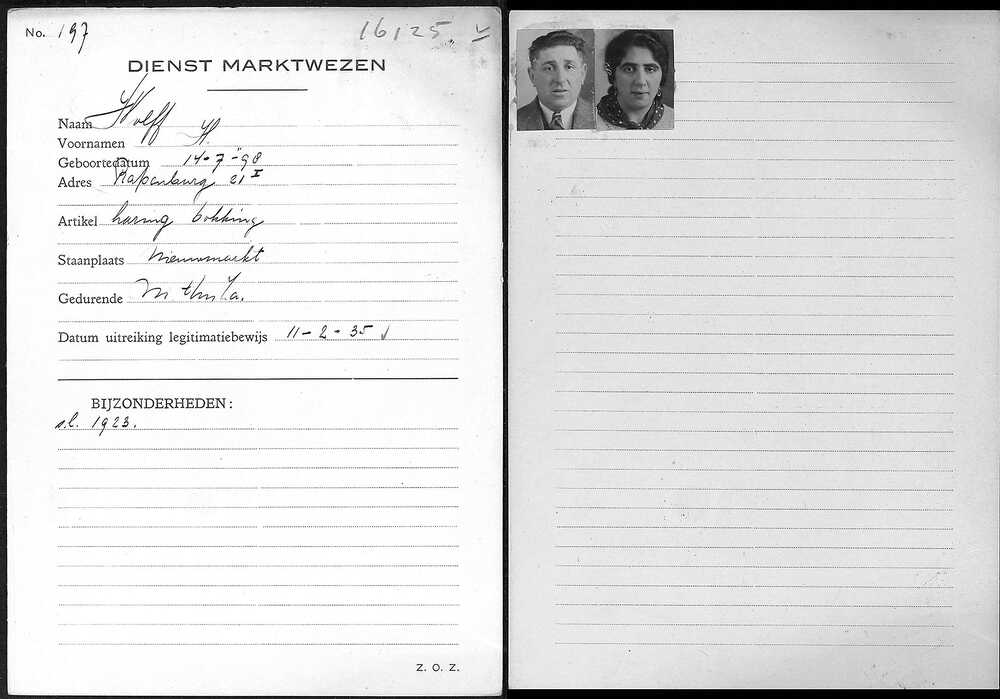 No. 197
16125.
DIENST MARKTWEZEN
Naam Wolff
Voornamen H.
Geboortedatum 14-7-98
Adres Rapenburg 21 I
Artikel haring bokking
Staanplaats Nieuwmarkt
Gedurende
Datum uitreiking legitimatiebewijs 11-2-35
BIJZONDERHEDEN:
s.l. 1923.
Z. O. Z.